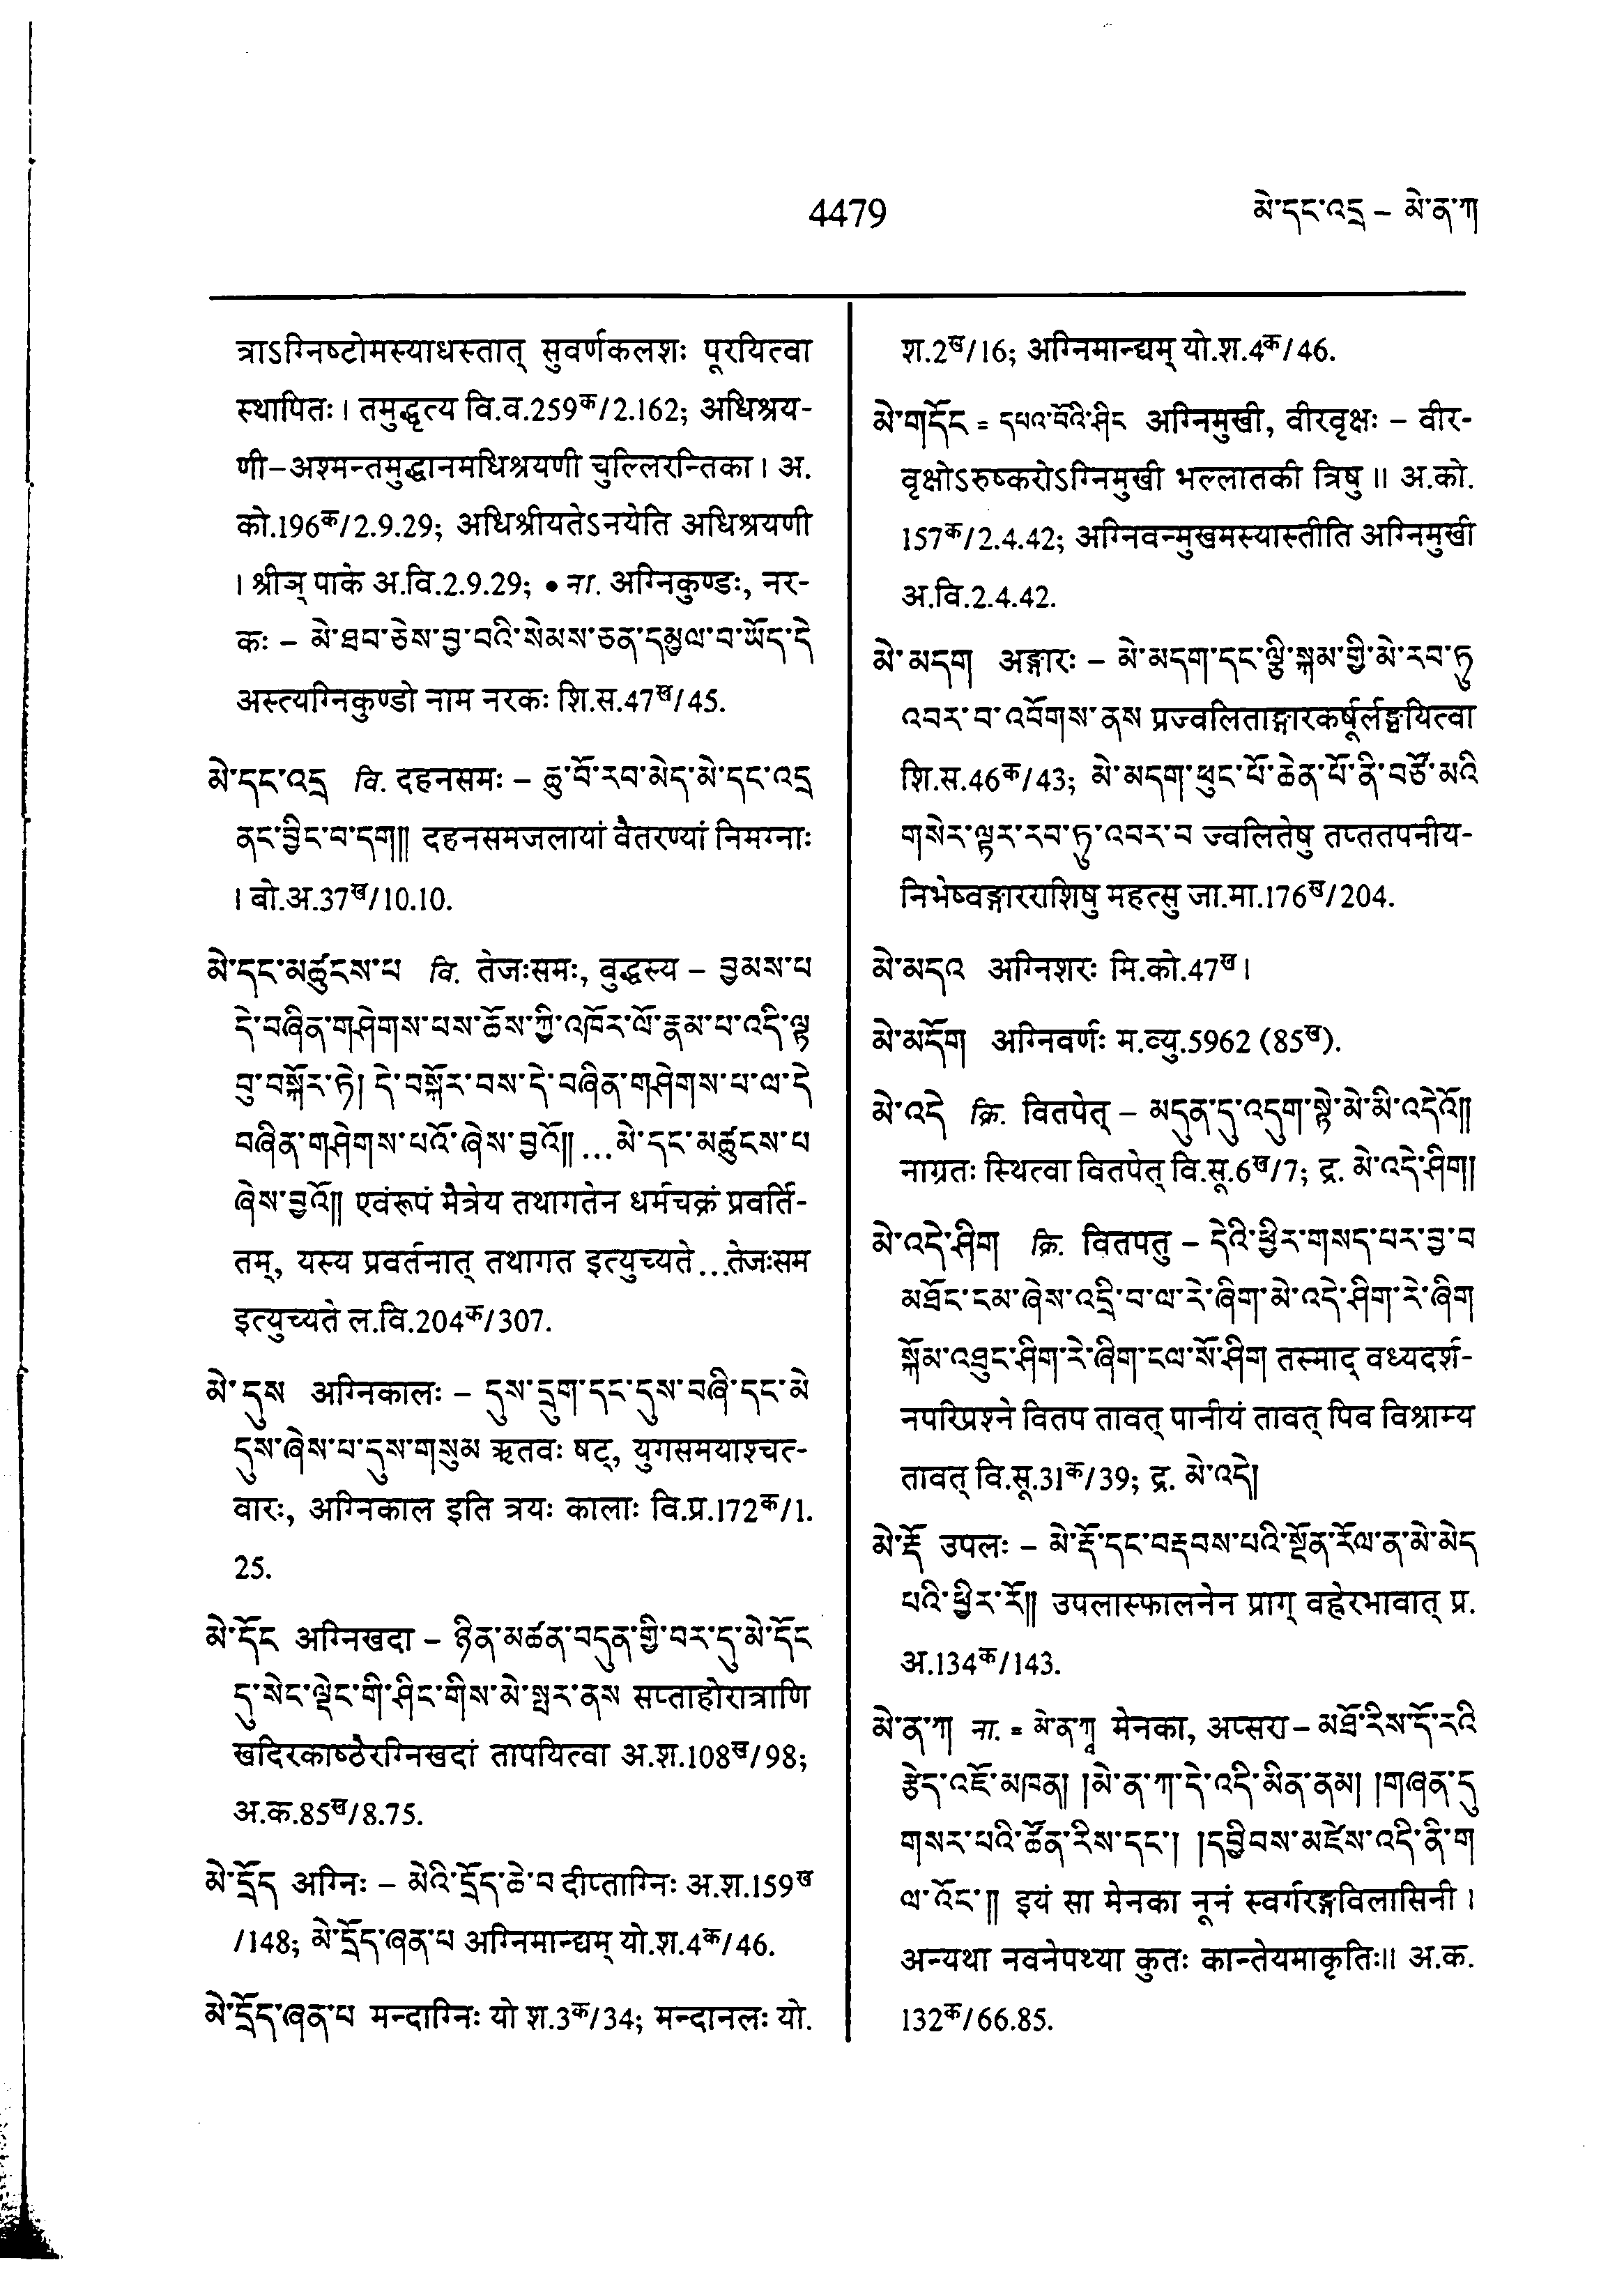 4479
མེ་དང་འདྲ – མེ་ན་ཀ
त्राऽग्निष्टोमस्याधस्तात् सुवर्णकलशः पूरयित्वा
स्थापितः। तमुद्धृत्य वि.व.259क/2.162; अधिश्रय-
णी–अश्मन्तमुद्धानमधिश्रयणी चुल्लिरन्तिका। अ.
को.196क/2.9.29; अधिश्रीयतेऽनयेति अधिश्रयणी
। श्रीञ् पाके अ.वि.2.9.29; • ना. अग्निकुण्डः, नर-
कः – མེ་ཐབ་ཅེས་བྱ་བའི་སེམས་ཅན་དམྱལ་བ་ཡོད་དེ
अस्त्यग्निकुण्डो नाम नरकः शि.स.47ख/45.
མེ་དང་འདྲ वि. दहनसमः – ཆུ་བོ་རབ་མེད་མེ་དང་འདྲ
ནང་བྱིང་བ་དག།། दहनसमजलायां वैतरण्यां निमग्नाः
। बो.अ.37ख/10.10.
མེ་དང་མཚུངས་པ वि. तेजःसमः, बुद्धस्य – བྱམས་པ
དེ་བཞིན་གཤེགས་པས་ཆོས་ཀྱི་འཁོར་ལོ་རྣམ་པ་འདི་ལྟ
བུ་བསྐོར་ཏེ། དེ་བསྐོར་བས་དེ་བཞིན་གཤེགས་པ་ལ་དེ
བཞིན་གཤེགས་པའོ་ཞེས་བྱའོ།། ...མེ་དང་མཚུངས་པ
ཞེས་བྱའོ།། एवंरूपं मैत्रेय तथागतेन धर्मचक्रं प्रवर्ति-
तम्, यस्य प्रवर्तनात् तथागत इत्युच्यते...तेजःसम
इत्युच्यते ल.वि.204क/307.
མེ་དུས अग्निकालः – དུས་དྲུག་དང་དུས་བཞི་དང་མེ
དུས་ཞེས་པ་དུས་གསུམ ऋतवः षट्, युगसमयाश्चत्-
वारः, अग्निकाल इति त्रयः कालाः वि.प्र.172क/1.
25.
མེ་དོང अग्निखदा – ཉིན་མཚན་བདུན་གྱི་བར་དུ་མེ་དོང
དུ་སེང་ལྡེང་གི་ཤིང་གིས་མེ་སྦར་ནས सप्ताहोरात्राणि
खदिरकाष्ठैरग्निखदां तापयित्वा अ.श.108ख/98;
अ.क.85ख/8.75.
མེ་དྲོད अग्निः – མེའི་དྲོད་ཆེ་བ दीप्ताग्निः अ.श.159ख
/148; མེ་དྲོད་ཞན་པ अग्निमान्द्यम् यो.श.4क/46.
མེ་དྲོད་ཞན་པ मन्दाग्निः यो श.3क/34; मन्दानलः यो.
श.2ख/16; अग्निमान्द्यम् यो.श.4क/46.
མེ་གདོང = དཔའ་བོའི་ཤིང अग्निमुखी, वीरवृक्षः – वीर-
वृक्षोऽरुष्करोऽग्निमुखी भल्लातकी त्रिषु॥ अ.को.
157क/2.4.42; अग्निवन्मुखमस्यास्तीति अग्निमुखी
अ.वि.2.4.42.
མེ་མདག अङ्गारः – མེ་མདག་དང་ལྕི་སྐམ་གྱི་མེ་རབ་ཏུ
འབར་བ་འབོགས་ནས प्रज्वलिताङ्गारकर्षूर्लङ्घयित्वा
शि.स.46क/43; མེ་མདག་ཕུང་པོ་ཆེན་པོ་ནི་བཙོ་མའི
གསེར་ལྟར་རབ་ཏུ་འབར་བ ज्वलितेषु तप्ततपनीय-
निभेष्वङ्गारराशिषु महत्सु जा.मा.176ख/204.
མེ་མདའ अग्निशरः मि.को.47ख।
མེ་མདོག अग्निवर्णः म.व्यु.5962 (85ख).
མེ་འདེ क्रि. वितपेत् – མདུན་དུ་འདུག་སྟེ་མེ་མི་འདེའོ།།
नाग्रतः स्थित्वा वितपेत् वि.सू.6ख/7; द्र. མེ་འདེ་ཤིག།
མེ་འདེ་ཤིག क्रि. वितपतु – དེའི་ཕྱིར་གསད་པར་བྱ་བ
མཐོང་ངམ་ཞེས་འདྲི་བ་ལ་རེ་ཞིག་མེ་འདེ་ཤིག་རེ་ཞིག
སྐོམ་འཐུང་ཤིག་རེ་ཞིག་ངལ་སོ་ཤིག तस्माद् वध्यदर्श-
नपरिप्रश्ने वितप तावत् पानीयं तावत् पिव विश्राम्य
तावत् वि.सू.31क/39; द्र. མེ་འདེ།
མེ་རྡོ उपलः – མེ་རྡོ་དང་བརྡབས་པའི་སྔོན་རོལ་ན་མེ་མེད
པའི་ཕྱིར་རོ།། उपलास्फालनेन प्राग् वह्नेरभावात् प्र.
अ.134क/143.
མེ་ན་ཀ ना. = མེ་ན་ཀཱ मेनका, अप्सरा – མཐོ་རིས་དོ་རའི
རྩེད་འཇོ་མཁན། །མེ་ན་ཀ་དེ་འདི་མིན་ནམ། །གཞན་དུ
གསར་པའི་ཚོན་རིས་དང་། །དབྱིབས་མཛེས་འདི་ནི་ག
ལ་འོང་།། इयं सा मेनका नूनं स्वर्गरङ्गविलासिनी।
अन्यथा नवनेपथ्या कुतः कान्तेयमाकृतिः॥ अ.क.
132क/66.85.